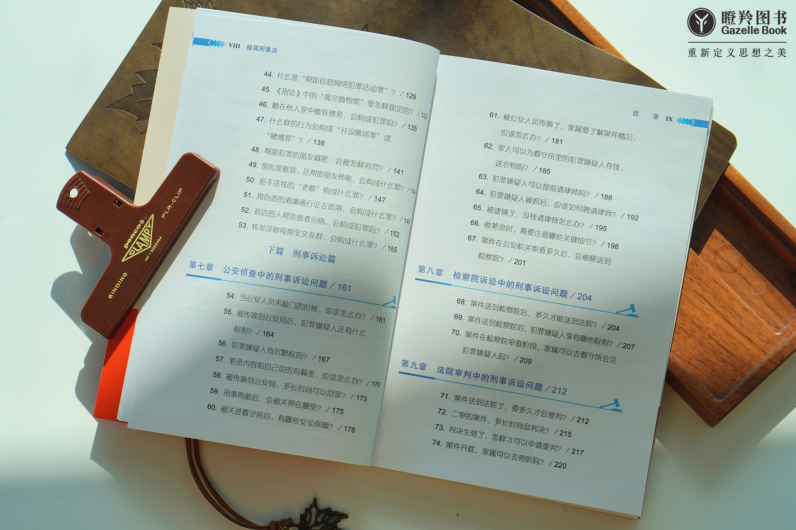 瞪羚图书
Gazelle Book
重新定义思想之美
VIII 极简刑事法
44. 什么是“帮助信息网络犯罪活动罪”？/ 129
45. 《刑法》中的“高空抛物罪”是怎样规定的？/ 13
46. 赖在他人家中催收债务，会构成犯罪吗？/ 135
47. 什么样的行为会构成“开设赌场罪”或
“赌博罪”？/ 138
48. 帮助犯罪的朋友藏匿，会被怎样判罚？/ 141
49. 明知是赃款，还帮助朋友转账，会构成什么罪？/ 14
50. 拒不还钱的“老赖”构成什么罪？/ 147
51. 用伪造的港澳通行证去香港，会构成什么罪？/ 14
52. 药店的人帮助患者治病，会构成犯罪吗？/ 152
53. 转发淫秽视频至交友群，会构成什么罪？/ 155
下篇 刑事诉讼篇
第七章 公安侦查中的刑事诉讼问题 / 161
54. 当公安人员来敲门的时候，你该怎么办？/ 161
55. 被传唤到公安局后，犯罪嫌疑人还有什么
权利？/ 164
56. 犯罪嫌疑人有沉默权吗？/ 167
57. 笔录内容和自己说的有偏差，应该怎么办？/ 170
58. 被传唤到公安局，多长时间可以回家？/ 173
59. 刑事拘留后，会被关押在哪里？/ 175
60. 被关进看守所后，有哪些安全保障？/ 178
目 录 IX
61. 被公安人员传唤了，家属要了解案件情况，
应该怎么办？/ 181
62. 家人可以为看守所里的犯罪嫌疑人存钱、
送衣物吗？/ 185
63. 犯罪嫌疑人可以提前请律师吗？/ 188
64. 犯罪嫌疑人被抓后，应该如何聘请律师？/ 192
65. 被逮捕了，没钱请律师怎么办？/ 195
66. 做笔录时，需要注意哪些关键细节？/ 198
67. 案件在公安机关审查多久后，会被移送到
检察院？/ 201
第八章 检察院诉讼中的刑事诉讼问题 / 204
68. 案件送到检察院后，多久才能送到法院？/ 204
69. 案件送到检察院后，犯罪嫌疑人享有哪些权利？/ 207
70. 案件在检察院审查阶段，家属可以去看守所会见
犯罪嫌疑人吗？/ 209
第九章 法院审判中的刑事诉讼问题 / 212
71. 案件送到法院了，要多久才会宣判？/ 212
72. 二审的案件，多长时间会判决？/ 215
73. 判决生效了，怎样才可以申请重判？/ 217
74. 案件开庭，家属可以去旁听吗？/ 220
PENCO
CLAMPY
PLA-CLIP
BINDING